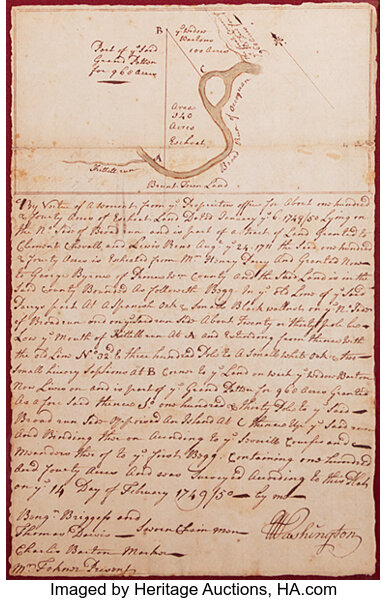 B
yᵉ Widow
Bartons
100 Acres
Part of yᵉ Said
Grand Patton
for 960 Acres
C
Area
140
Acres
Escheat
Broad Run of Occoquan
A
Kittill run
Brent Town Land
By Virtue of a Warrent from yᵉ Proprietors office for About one hundred
& fourty Acres of Escheat Land Dated January yᵉ 6 1749/50 Lying on
the Nᵒ Side of Broad run and is part of a tract of Land Granted to
Clement Chevell and Lewis Bins Augˢᵗ yᵉ 24 1711 the Said one hundred
& fourty Acres is Escheated from Mʳ Henry Day And Granted Now
to George Byrne of County and the Said Land is in the
Said County Bounded As followeth Begg. In yᵉ old Line of yᵉ Said
Days part At a Spanish Oak & Small Black wallnut on yᵉ Nᵒ Side
of Broad run and on yᵉ Said run Side About Twenty or thirty pole be
Low yᵉ Mouth of Kittill run At A and Extending from thence With
the old Line Nᵒ 32 E three hundred Pole to a Small white oak & two
Small hicory Saplins at B Corner to yᵉ Land on wich yᵉ widow Barton
Now Lives on and is part of yᵉ Grand Patton for 960 Acres Granted
As a for Said thence Sᵒ one hundred & Thirty Pole to yᵉ Said
Broad run Side Opposed An Island At C thence up yᵉ Said run
And Binding there on According to yᵉ Severill Courses and
Meanders there of to yᵉ first Begg. Containing one hundred
And fourty Acres And was Surveyed According to this Plat
on yᵉ 14 Day of February 1749/50 by me
GWashington
Benjⁿ Briggess and
Thomas Davis Sworn Chain men
Charles Barton Marker
Mʳ Present
Imaged by Heritage Auctions, HA.com